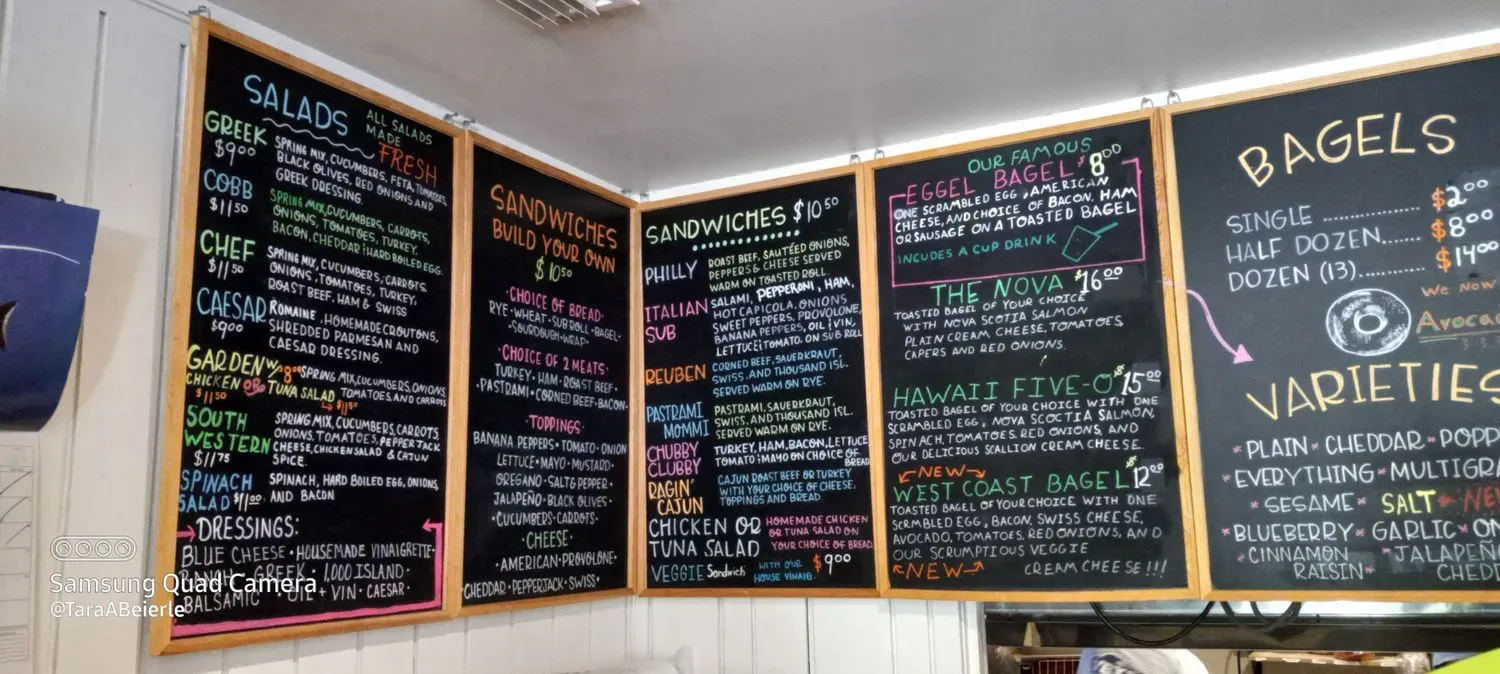 SALADS
ALL SALADS
MADE
FRESH
GREEK
$9.00
SPRING MIX, CUCUMBERS, FETA, TOMATOES,
BLACK OLIVES, RED ONIONS AND
GREEK DRESSING.
COBB
$11.50
SPRING MIX, CUCUMBERS, CARROTS,
ONIONS, TOMATOES, TURKEY,
BACON, CHEDDAR & HARD BOILED EGG.
CHEF
$11.50
SPRING MIX, CUCUMBERS, CARROTS,
ONIONS, TOMATOES, TURKEY,
ROAST BEEF, HAM & SWISS
CAESAR
$9.00
ROMAINE, HOMEMADE CROUTONS,
SHREDDED PARMESAN AND
CAESAR DRESSING.
GARDEN $8.00
SPRING MIX, CUCUMBERS, ONIONS,
TOMATOES, AND CARROTS
W/ CHICKEN OR TUNA SALAD
$11.50 $11.50
SOUTH
WESTERN
$11.75
SPRING MIX, CUCUMBERS, CARROTS,
ONIONS, TOMATOES, PEPPER JACK
CHEESE, CHICKEN SALAD & CAJUN
SPICE.
SPINACH
SALAD $11.00
SPINACH, HARD BOILED EGG, ONIONS,
AND BACON
DRESSINGS:
BLUE CHEESE • HOUSEMADE VINAIGRETTE •
GREEK • 1,000 ISLAND •
BALSAMIC • OIL + VIN • CAESAR •
SANDWICHES
BUILD YOUR OWN
$10.50
• CHOICE OF BREAD •
RYE • WHEAT • SUB ROLL • BAGEL •
• SOURDOUGH • WRAP •
• CHOICE OF 2 MEATS •
TURKEY • HAM • ROAST BEEF •
• PASTRAMI • CORNED BEEF • BACON •
• TOPPINGS •
BANANA PEPPERS • TOMATO • ONION
LETTUCE • MAYO • MUSTARD •
OREGANO • SALT & PEPPER •
JALAPEÑO • BLACK OLIVES •
• CUCUMBERS • CARROTS •
• CHEESE •
• AMERICAN • PROVOLONE •
CHEDDAR • PEPPERJACK • SWISS •
SANDWICHES $10.50
PHILLY
ROAST BEEF, SAUTÉED ONIONS,
PEPPERS & CHEESE SERVED
WARM ON TOASTED ROLL.
ITALIAN
SUB
SALAMI, PEPPERONI, HAM,
HOT CAPICOLA, ONIONS
SWEET PEPPERS, PROVOLONE,
BANANA PEPPERS, OIL & VIN,
LETTUCE & TOMATO. ON SUB ROLL
REUBEN
CORNED BEEF, SAUERKRAUT,
SWISS, AND THOUSAND ISL.
SERVED WARM ON RYE.
PASTRAMI
MOMMI
PASTRAMI, SAUERKRAUT,
SWISS, AND THOUSAND ISL.
SERVED WARM ON RYE.
CHUBBY
CLUBBY
TURKEY, HAM, BACON, LETTUCE
TOMATO & MAYO ON CHOICE OF
BREAD
RAGIN'
CAJUN
CAJUN ROAST BEEF OR TURKEY
WITH YOUR CHOICE OF CHEESE,
TOPPINGS AND BREAD.
CHICKEN OR
TUNA SALAD
HOMEMADE CHICKEN
OR TUNA SALAD ON
YOUR CHOICE OF BREAD
VEGGIE Sandwich
WITH OUR
HOUSE VINAIG.
$9.00
OUR FAMOUS
EGGEL BAGEL $8.00
ONE SCRAMBLED EGG, AMERICAN
CHEESE, AND CHOICE OF BACON, HAM
OR SAUSAGE ON A TOASTED BAGEL
INCUDES A CUP DRINK
THE NOVA $16.00
TOASTED BAGEL OF YOUR CHOICE
WITH NOVA SCOTIA SALMON
PLAIN CREAM CHEESE, TOMATOES,
CAPERS AND RED ONIONS.
HAWAII FIVE-O $15.00
TOASTED BAGEL OF YOUR CHOICE WITH ONE
SCRAMBLED EGG, NOVA SCOCTIA SALMON,
SPINACH, TOMATOES, RED ONIONS, AND
OUR DELICIOUS SCALLION CREAM CHEESE.
NEW
WEST COAST BAGEL $12.00
TOASTED BAGEL OF YOUR CHOICE WITH ONE
SCRMBLED EGG, BACON, SWISS CHEESE,
AVOCADO, TOMATOES, RED ONIONS, AND
OUR SCRUMPTIOUS VEGGIE
CREAM CHEESE!!!
NEW
BAGELS
SINGLE .............. $2.00
HALF DOZEN...... $8.00
DOZEN (13)........... $14.00
WE NOW
Avoca
VARIETIES
*PLAIN* CHEDDAR* POPP
*EVERYTHING* MULTIGRA
*SESAME* SALT* NE
*BLUEBERRY* GARLIC* ON
*CINNAMON
RAISIN*
*JALAPEÑ
CHEDD
Samsung Quad Camera
@TaraABeierle